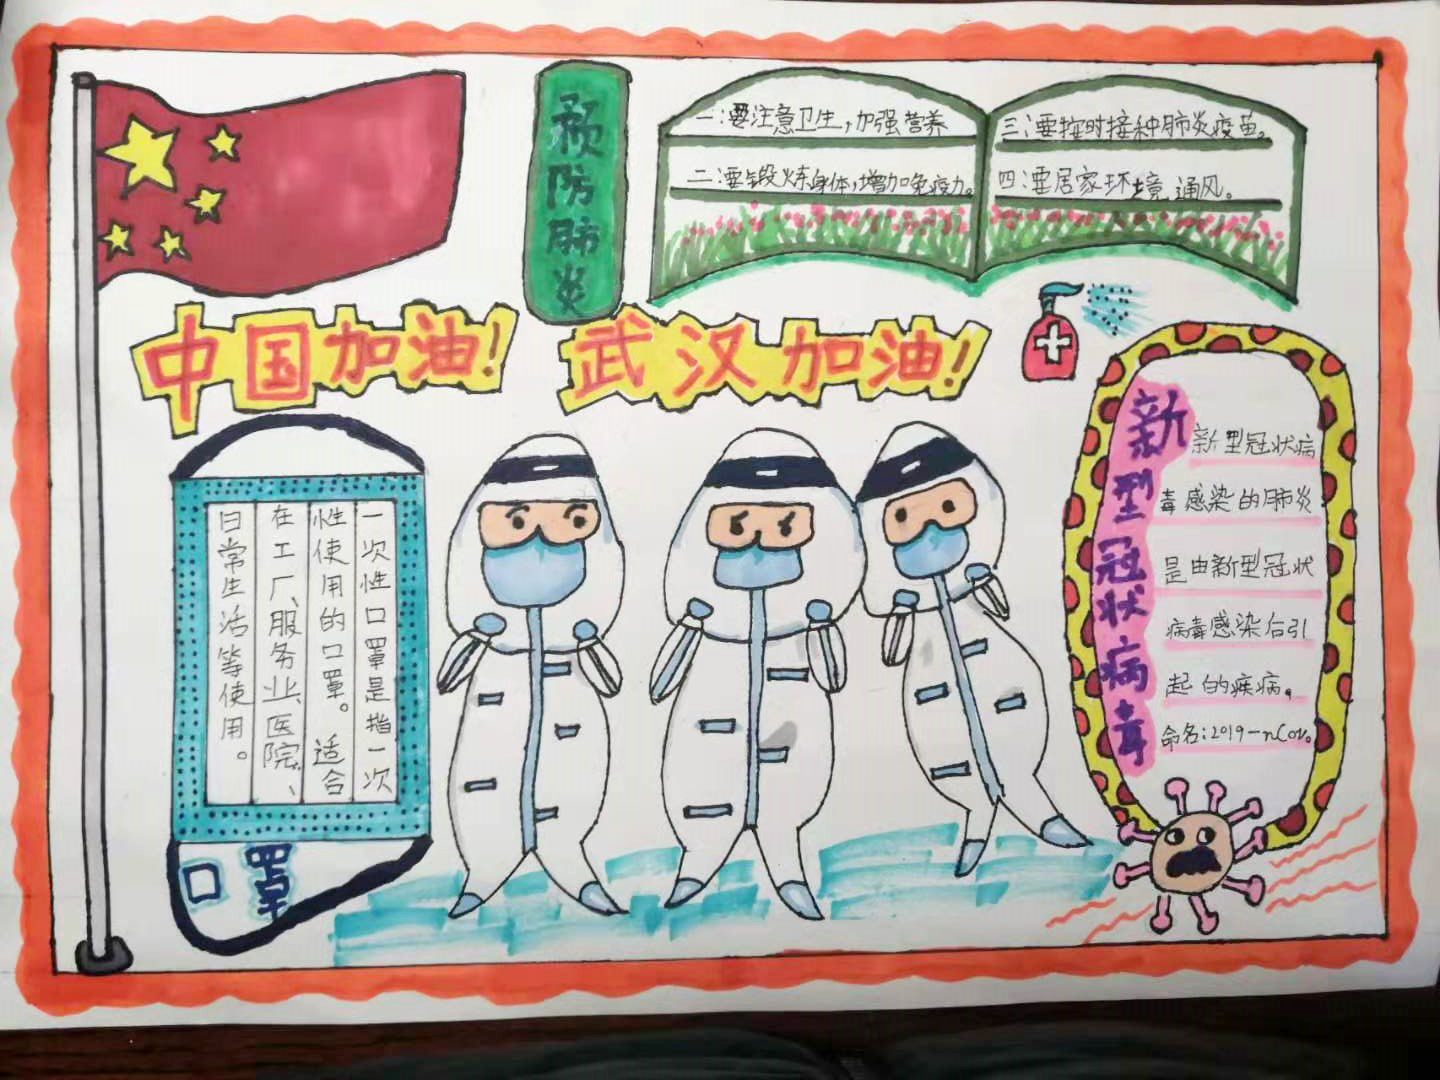 预防肺炎
一:要注意卫生,加强营养
二:要锻炼身体,增加免疫力。
三:要按时接种肺炎疫苗。
四:要居家环境通风。
中国加油!
武汉加油!
一次性口罩是指一次
性使用的口罩。适合
在工厂、服务业、医院、
日常生活等使用。
口罩
新型冠状病毒
新型冠状病
毒感染的肺炎
是由新型冠状
病毒感染后引
起的疾病。
命名:2019-nCov。